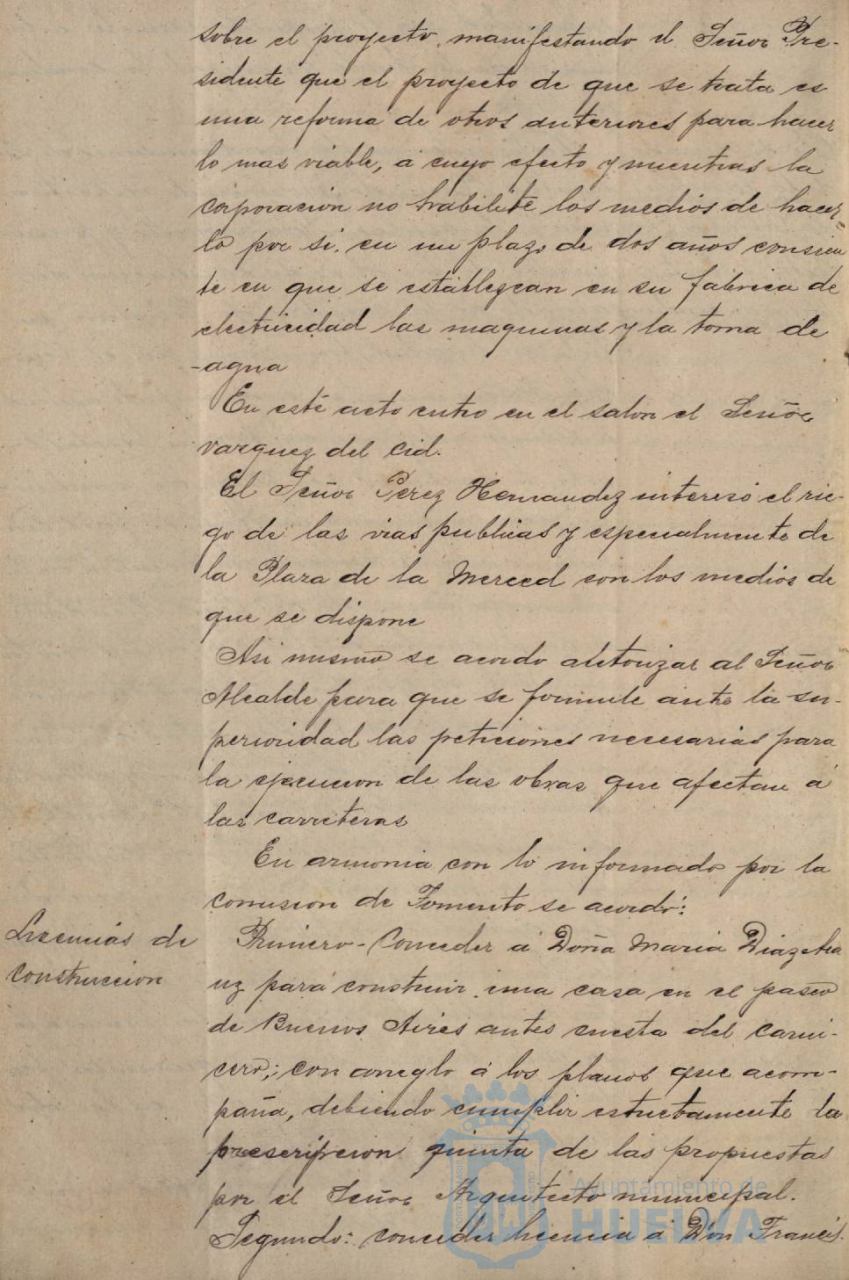 sobre el proyecto, manifestando el Señor Pre-
sidente que el proyecto de que se trata es
una reforma de otros anteriores para hacer
lo mas viable, á cuyo efecto y mientras la
corporacion no habilite los medios de hacer=
lo por si, en un plazo de dos años consien
te en que se establezcan en su fabrica de
electricidad las maquinas y la toma de
-agua
En esté acto entro en el salon el Señor
Vazquez del Cid.
El Señor Perez Hernandez interesó el rie-
go de las vias publicas y especialmente de
la Plaza de la Merced con los medios de
que se dispone
Asi mismo se acordo autorizar al Señor
Alcalde para que se formule ante la su-
perioridad las peticiones necesarias para
la ejecucion de las obras que afectan á
las carreteras
En armonia con lo informado por la
comision de Fomento se acordó:
Licencias de
construccion
Primero- Conceder á Doña Maria Diaz
para construir una casa en el paseo
de Buenos Aires antes cuesta del carni-
cero; con arreglo á los planos que acom-
paña, debiendo cumplir estrictamente la
prescripcion quinta de las propuestas
por el Señor Arquitecto municipal.
Segundo: conceder licencia á Don Francis
Ayuntamiento de
HUELVA